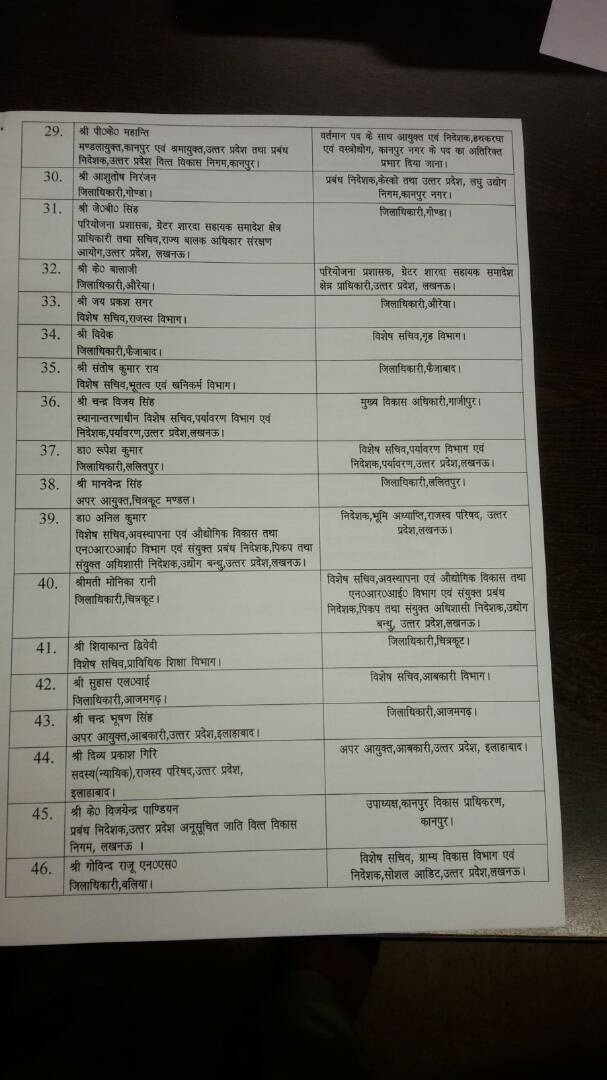 29.
श्री पी०के० महान्ति
मण्डलायुक्त,कानपुर एवं श्रमायुक्त,उत्तर प्रदेश तथा प्रबंध
निदेशक,उत्तर प्रदेश वित्त विकास निगम,कानपुर।
वर्तमान पद के साथ आयुक्त एवं निदेशक,हथकरघा
एवं वस्त्रोद्योग, कानपुर नगर के पद का अतिरिक्त
प्रभार दिया जाना।
30.
श्री आशुतोष निरंजन
जिलाधिकारी,गोण्डा।
प्रबंध निदेशक,केस्को तथा उत्तर प्रदेश, लघु उद्योग
निगम,कानपुर नगर।
31.
श्री जे०बी० सिंह
परियोजना प्रशासक, ग्रेटर शारदा सहायक समादेश क्षेत्र
प्राधिकारी तथा सचिव,राज्य बालक अधिकार संरक्षण
आयोग,उत्तर प्रदेश, लखनऊ।
जिलाधिकारी,गोण्डा।
32.
श्री के० बालाजी
जिलाधिकारी,औरैया।
परियोजना प्रशासक, ग्रेटर शारदा सहायक समादेश
क्षेत्र प्राधिकारी,उत्तर प्रदेश, लखनऊ।
33.
श्री जय प्रकश सगर
विशेष सचिव,राजस्व विभाग।
जिलाधिकारी,औरैया।
34.
श्री विवेक
जिलाधिकारी,फैजाबाद।
विशेष सचिव,गृह विभाग।
35.
श्री संतोष कुमार राय
विशेष सचिव,भूतत्व एवं खनिकर्म विभाग।
जिलाधिकारी,फैजाबाद।
36.
श्री चन्द्र विजय सिंह
स्थानान्तरणाधीन विशेष सचिव,पर्यावरण विभाग एवं
निदेशक,पर्यावरण,उत्तर प्रदेश,लखनऊ।
मुख्य विकास अधिकारी,गाजीपुर।
37.
डा० रूपेश कुमार
जिलाधिकारी,ललितपुर।
विशेष सचिव,पर्यावरण विभाग एवं
निदेशक,पर्यावरण,उत्तर प्रदेश,लखनऊ।
38.
श्री मानवेन्द्र सिंह
अपर आयुक्त,चित्रकूट मण्डल।
जिलाधिकारी,ललितपुर।
39.
डा० अनिल कुमार
विशेष सचिव,अवस्थापना एवं औद्योगिक विकास तथा
एन०आर०आई० विभाग एवं संयुक्त प्रबंध निदेशक,पिकप तथा
संयुक्त अधिशासी निदेशक,उद्योग बन्धु,उत्तर प्रदेश,लखनऊ।
निदेशक,भूमि अध्याप्ति,राजस्व परिषद, उत्तर
प्रदेश,लखनऊ।
40.
श्रीमती मोनिका रानी
जिलाधिकारी,चित्रकूट।
विशेष सचिव,अवस्थापना एवं औद्योगिक विकास तथा
एन०आर०आई० विभाग एवं संयुक्त प्रबंध
निदेशक,पिकप तथा संयुक्त अधिशासी निदेशक,उद्योग
बन्धु, उत्तर प्रदेश,लखनऊ।
41.
श्री शिवाकान्त द्विवेदी
विशेष सचिव,प्राविधिक शिक्षा विभाग।
जिलाधिकारी,चित्रकूट।
42.
श्री सुहास एल०वाई
जिलाधिकारी,आजमगढ़।
विशेष सचिव,आबकारी विभाग।
43.
श्री चन्द्र भूषण सिंह
अपर आयुक्त,आबकारी,उत्तर प्रदेश,इलाहाबाद।
जिलाधिकारी,आजमगढ़।
44.
श्री दिव्य प्रकाश गिरि
सदस्य(न्यायिक),राजस्व परिषद,उत्तर प्रदेश,
इलाहाबाद।
अपर आयुक्त,आबकारी,उत्तर प्रदेश, इलाहाबाद।
45.
श्री के० विजयेन्द्र पाण्डियन
प्रबंध निदेशक,उत्तर प्रदेश अनूसूचित जाति वित्त विकास
निगम, लखनऊ ।
उपाध्यक्ष,कानपुर विकास प्राधिकरण,
कानपुर।
46.
श्री गोविन्द राजू एन०एस०
जिलाधिकारी,बलिया।
विशेष सचिव, ग्राम्य विकास विभाग एवं
निदेशक,सोशल आडिट,उत्तर प्रदेश,लखनऊ।